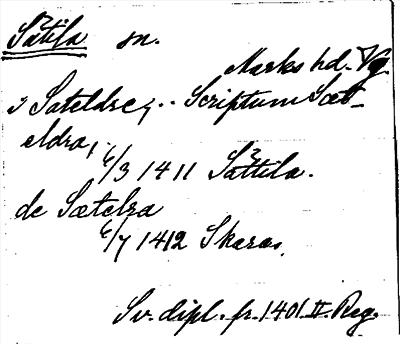 Sätila sn.
Marks hd. Vg.
i Sateldre; .. Scriptum Sæt-
eldra,
6/3 1411 Sättila.
de Sætelra
6/7 1412 Skara.
Sv. dipl. fr. 1401 II Reg.